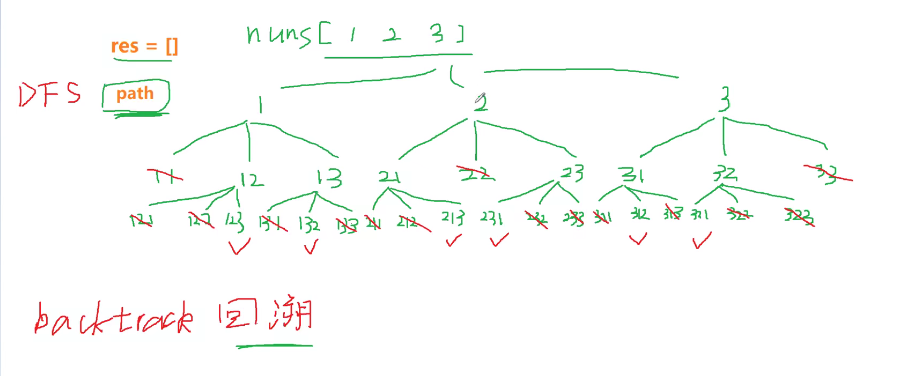 nums[ 1 2 3 ]
res = []
DFS path
1 2 3
11 12 13 21 22 23 31 32 33
121 122 123 131 132 133 211 212 213 231 232 233 311 312 313 321 322 323
backtrack 回溯